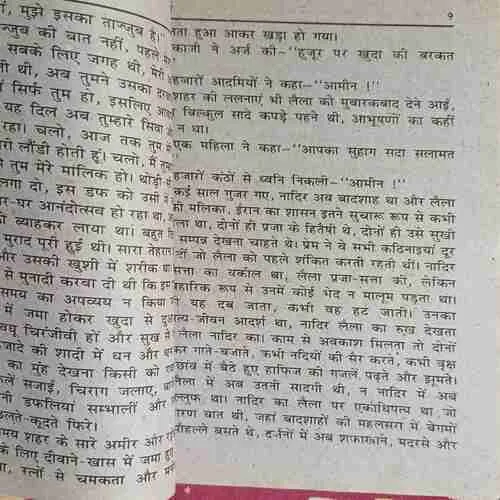 ां, मुझे इसका ताज्जुब है।"
ज्जुब की बात नहीं, पहले
सबके लिए जगह थी, मेरी
ी थी, अब तुमने उसका
ं सिर्फ तुम हो, इसलिए
यह दिल अब तुम्हारे सिवा
रहा। चलो, आज तक तुम
री लौंडी होती हूं। चलो, मैं
तुम मेरे मालिक हो। थोड़ी
लगा दो, इस डफ को उसी
र-घर आनंदोत्सव हो रहा था,
को ब्याहकर लाया था। बहुत
मुराद पूरी हुई थी। सारा तेहरान
और उसकी खुशी में शरीक था
से मुनादी करवा दी थी कि
समय का अपव्यय न किया
में जमा होकर खुदा से
वधु चिरंजीवी हों और सुख से
जादे की शादी में धन और
का मुंह देखना किसी को
लें सजाईं, चिराग जलाए,
नी डफलियां सम्भालीं और
छलते-कूदते फिरे।
मय शहर के सारे अमीर और
के लिए दीवाने-खास में जमा
ा, रत्नों से चमकता और
9
ता हुआ आकर खड़ा हो गया।
काजी ने अर्ज की-"हुजूर पर खुदा की बरकत
हजारों आदमियों ने कहा-"आमीन !"
शहर की ललनाएं भी लैला को मुबारकबाद देने आईं,
बिल्कुल सादे कपड़े पहने थी, आभूषणों का कहीं
न था।
एक महिला ने कहा-"आपका सुहाग सदा सलामत
हजारों कंठों से ध्वनि निकली-"आमीन !"
कई साल गुजर गए, नादिर अब बादशाह था और लैला
की मलिका, ईरान का शासन इतने सुचारू रूप से कभी
ला था, दोनों ही प्रजा के हितैषी थे, दोनों ही उसे सुखी
सम्पन्न देखना चाहते थे। प्रेम ने वे सभी कठिनाइयां दूर
थीं जो लैला को पहले शंकित करती रहती थीं। नादिर
सत्ता का वकील था, लैला प्रजा-सत्ता की, लेकिन
हारिक रूप से उनमें कोई भेद न मालूम पड़ता था।
यह दब जाता, कभी वह हट जाती। उनका
त्य-जीवन आदर्श था, नादिर लैला का रुख देखता
लैला नादिर का। काम से अवकाश मिलता तो दोनों
कर गाते-बजाते, कभी नदियों की सैर करते, कभी वृक्ष
छांव में बैठे हुए हाफिज की गजलें पढ़ते और झूमते।
लैला में अब उतनी सादगी थी, न नादिर में अब
ल्लुफ था। नादिर का लैला पर एकाधिपत्य था जो
रण बात थी, जहां बादशाहों की महलसरा में बेगमों
मोहल्ले बसते थे, दर्जनों में अब शफाखाने, मदरसे और